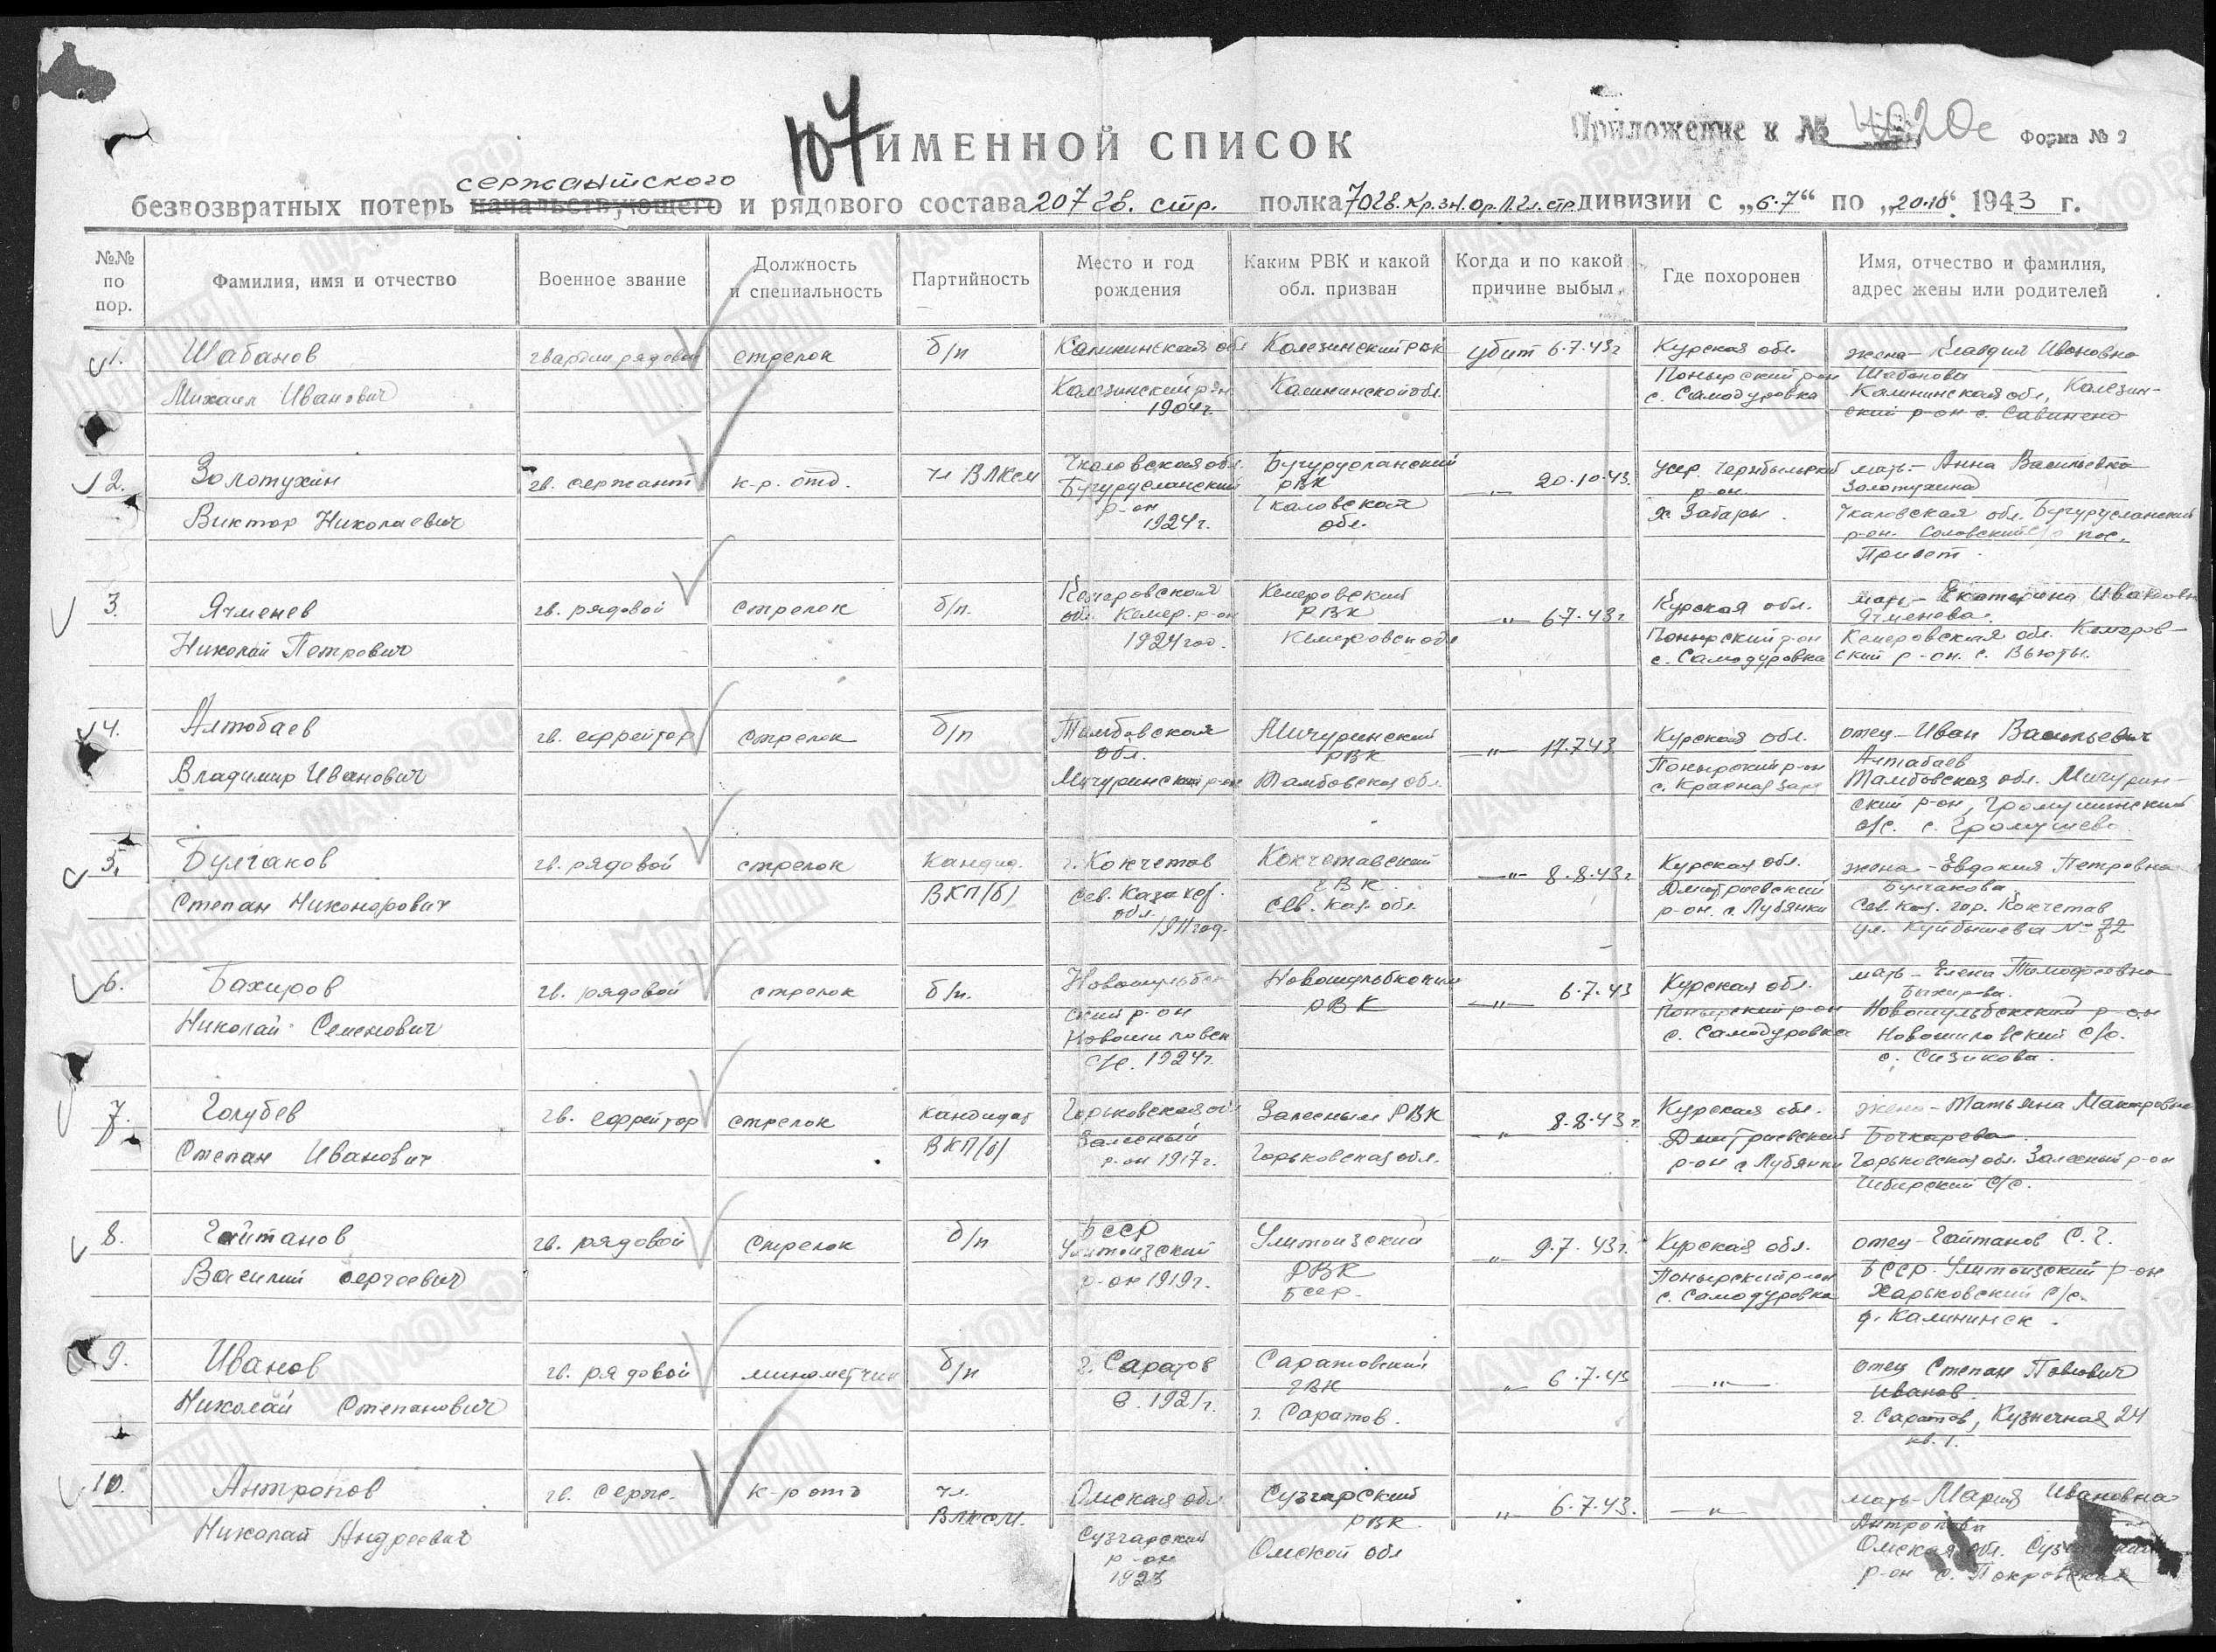 107
ИМЕННОЙ СПИСОК
Приложение к № 4020с
Форма № 2
сержантского
безвозвратных потерь начальствующего и рядового состава 207 гв. стр. полка 70 гв. Кр. зн. ор. Л. 2 ст. стр. дивизии с „6.7“ по „20.10“ 1943 г.
№№ по пор.
Фамилия, имя и отчество
Военное звание
Должность и специальность
Партийность
Место и год рождения
Каким РВК и какой обл. призван
Когда и по какой причине выбыл
Где похоронен
Имя, отчество и фамилия, адрес жены или родителей
1. Шабанов гвардии рядовой стрелок б/п Калининская обл Колезинский рвк убит 6.7.43г Курская обл. жена – Клавдия Ивановна
Михаил Иванович Колезинский р-он Калининской обл. Понырский р-он Шабанова
1904г. с. Самодуровка Калининская обл, Колезин-
ский р-он с.
2. Золотухин гв. сержант к-р. отд. чл ВЛКСМ Чкаловская обл. Бугурусланский РВК —„— 20.10.43. УССР. Чернобыльский мать – Анна Васильевна
Виктор Николаевич Бугурусланский р-он 1924г. Чкаловская обл. р-он. х. Забары. Золотухина
Чкаловская обл. Бугурусланский
р-он. с/с пос.
Привет.
3. Ячменев гв. рядовой стрелок б/п. Кемеровская Кемеровский РВК —„— 6.7.43г Курская обл. мать – Екатерина Ивановн
Николай Петрович обл. Кемер. р-он 1924 год. Кемеровск обл Понырский р-он Ячменева.
с. Самодуровка Кемеровская обл. Кемеров-
ский р-он. с. Вьюты.
4. Алтобаев гв. ефрейтор стрелок б/п Тамбовская обл. Мичуринский РВК —„— 17.7.43 Курская обл. отец – Иван Васильевич
Владимир Иванович Мичуринский р-он Тамбовская обл. Понырский р-он Алтабаев
с. Красная Заря Тамбовская обл. Мичурин-
ский р-он, Громушинский
с/с. с. Громушево.
5. Булгаков гв. рядовой стрелок Кандид. г. Кокчетав Кокчетавский ГВК. —„— 8.8.43г Курская обл. жена – Евдокия Петровна
Степан Никонорович ВКП/б/ Сев. Казахс. обл 1911 год. Сев. Каз. обл. Дмитриевский Булгакова
р-он. с. Лубянки Сев. Каз. гор. Кокчетав
ул. Куйбышева № 72
6. Бахиров гв. рядовой стрелок б/п. Новошульбин Новошульбински РВК —„— 6.7.43 Курская обл. мать – Елена Тимофеевна
Николай Семенович ский р-он Понырский р-он Бахирова.
Новошиловск с. Самодуровка Новошульбинский р-он
с/с. 1924г. Новошиловский с/с.
с. Сизикова.
7. Голубев гв. ефрейтор стрелок кандидат Горьковская обл Залесным РВК „ 8.8.43г. Курская обл. жена – Татьяна Макаровна
Степан Иванович ВКП/б/ Залесный р-он 1917г. Горьковская обл. Дмитриевский Бочкарева.
р-он с Лубянки Горьковская обл. Залесный р-он
Чибирский с/с.
8. Гайтанов гв. рядовой Стрелок б/п БССР Улитоизский „ 9.7.43г. Курская обл. отец – Гайтанов С. Г.
Василий Сергеевич Улитоизский р-он 1919г. РВК БССР. Понырский р-он БССР. Улитоизский р-он
с. Самодуровка Харьковский с/с.
д. Калининск.
9. Иванов гв. рядовой минометчик б/п г. Саратов Саратовский ГВК „ 6.7.43 —„— отец Степан Павлович
Николай Степанович в. 1921г. г. Саратов. Иванов.
г. Саратов, Кузнечная 24
кв. 1.
10. Антропов гв. серж. к-р отд чл. Омская обл Сузгарский РВК „ 6.7.43. —„— мать – Мария Ивановна
Николай Андреевич ВЛКСМ. Сузгарский р-он 1923 Омской обл Антропова
Омская обл.
р-он с. Покровская